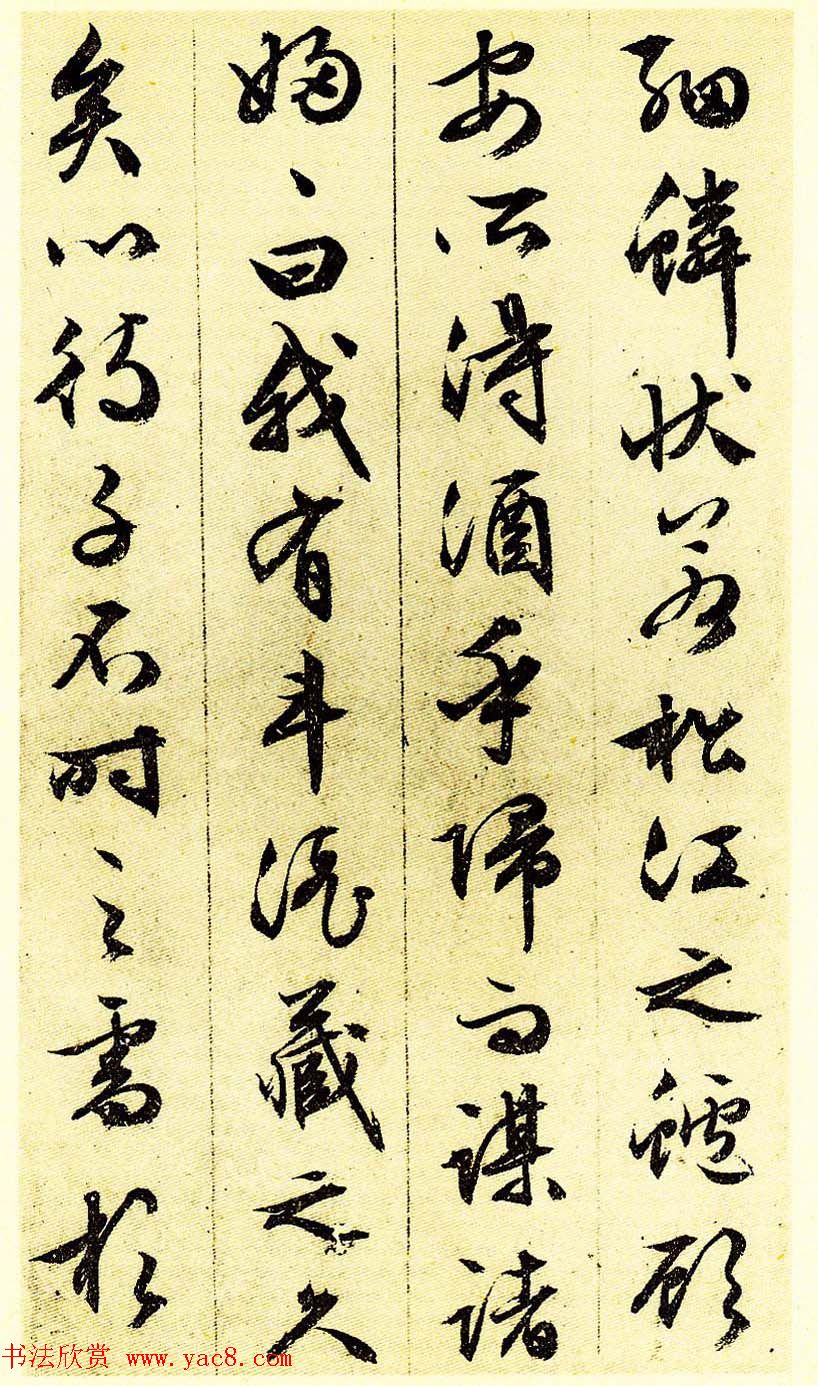 細鱗狀若松江之鱸顧
安所得酒乎歸而謀諸
婦〻曰我有斗酒藏之久
矣以待子不時之需於
书法欣赏 www.yac8.com